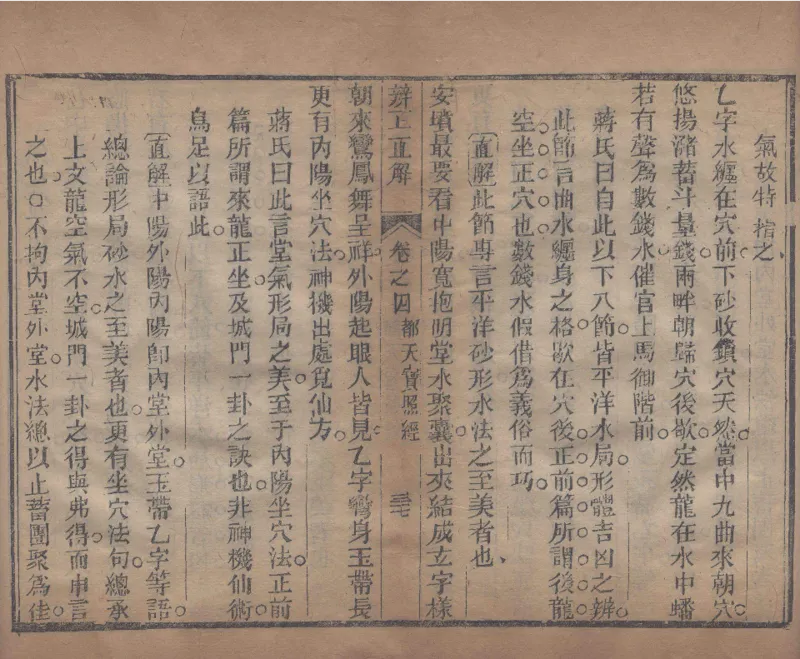 氣故特指之
乙字水纏在穴前下砂收鎖穴天然當中九曲來朝穴
悠揚瀦蓄斗量錢兩畔朝歸穴後欹定然龍在水中蟠
若有聲爲數錢水催官上馬御階前
蔣氏曰自此以下八節皆平洋水局形體吉凶之辨
此節言曲水纏身之格欹在穴後正前篇所謂後龍
空坐正穴也數錢水假借爲義俗而巧
直解此節專言平洋砂形水法之至美者也
安墳最要看中陽寬抱明堂水聚囊出夾結成立字樣
辨正直解
卷之四
都天寶照經
三七
朝來鸞鳳舞呈祥外陽起眼人皆見乙字彎身玉帶長
更有內陽坐穴法神機出處覓仙方
蔣氏曰此言堂氣形局之美至于內陽坐穴法正前
篇所謂來龍正坐及城門一卦之訣也非神機仙術
烏足以語此
直解中陽外陽內陽卽內堂外堂玉帶乙字等語
總論形局砂水之至美者也更有坐穴法句總承
上文龍空氣不空城門一卦之得與弗得而申言
之也○不拘內堂外堂水法總以止蓄團聚爲佳